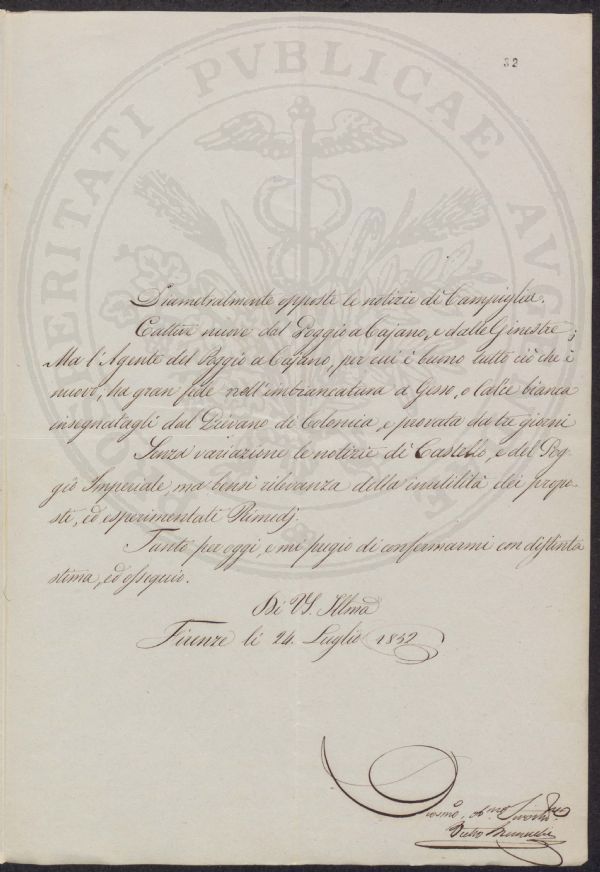 32
Diametralmente opposte le notizie di Campiglia.
Cattive nuove dal Poggio a Cajano, e dalle Ginestre;
Ma l'Agente del Poggio a Cajano, per cui è buono tutto ciò che è
nuovo, ha gran fede nell'imbrancatura a Gesso, o Calce bianca
insegnatagli dal Pievano di Colonica, e provata da tre giorni
Senza variazione le notizie di Castello, e del Pog-
gio Imperiale, ma bensì rilevanza della inutilità dei propo-
sti, ed esperimentati Rimedj.
Tanto per oggi, e mi pregio di confermarmi con distinta
stima, ed ossequio.
Di VS. Illma
Firenze lì 24. Luglio 1852
Pietro